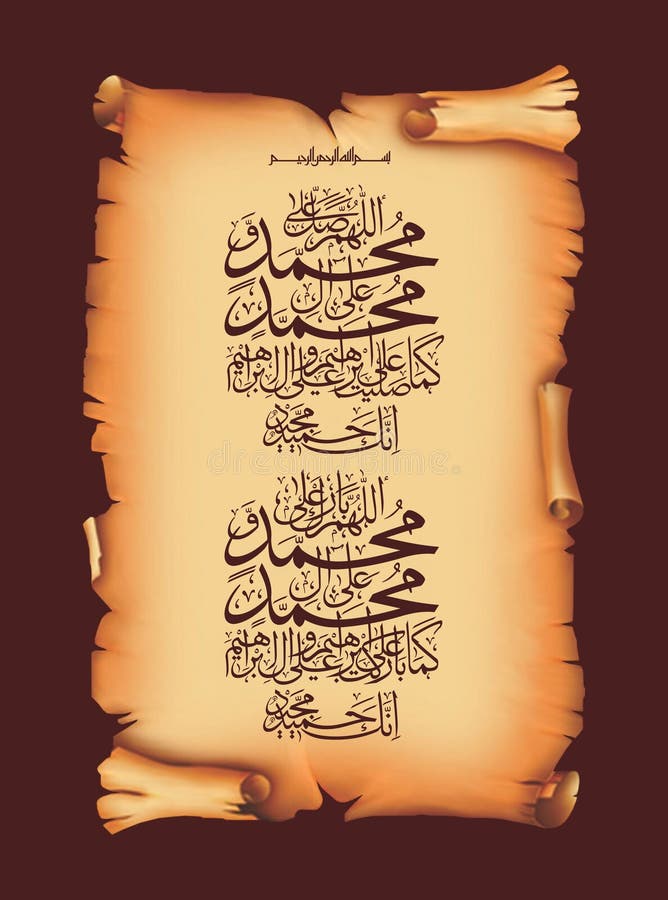 بسم الله الرحمن الرحيم
اللهم صل على
محمد و
على آل
محمد
كما صليت على إبراهيم و على آل إبراهيم
إنك حميد مجيد
dreamstime.
اللهم بارك على
محمد و
على آل
محمد
كما باركت على إبراهيم و على آل إبراهيم
إنك حميد مجيد